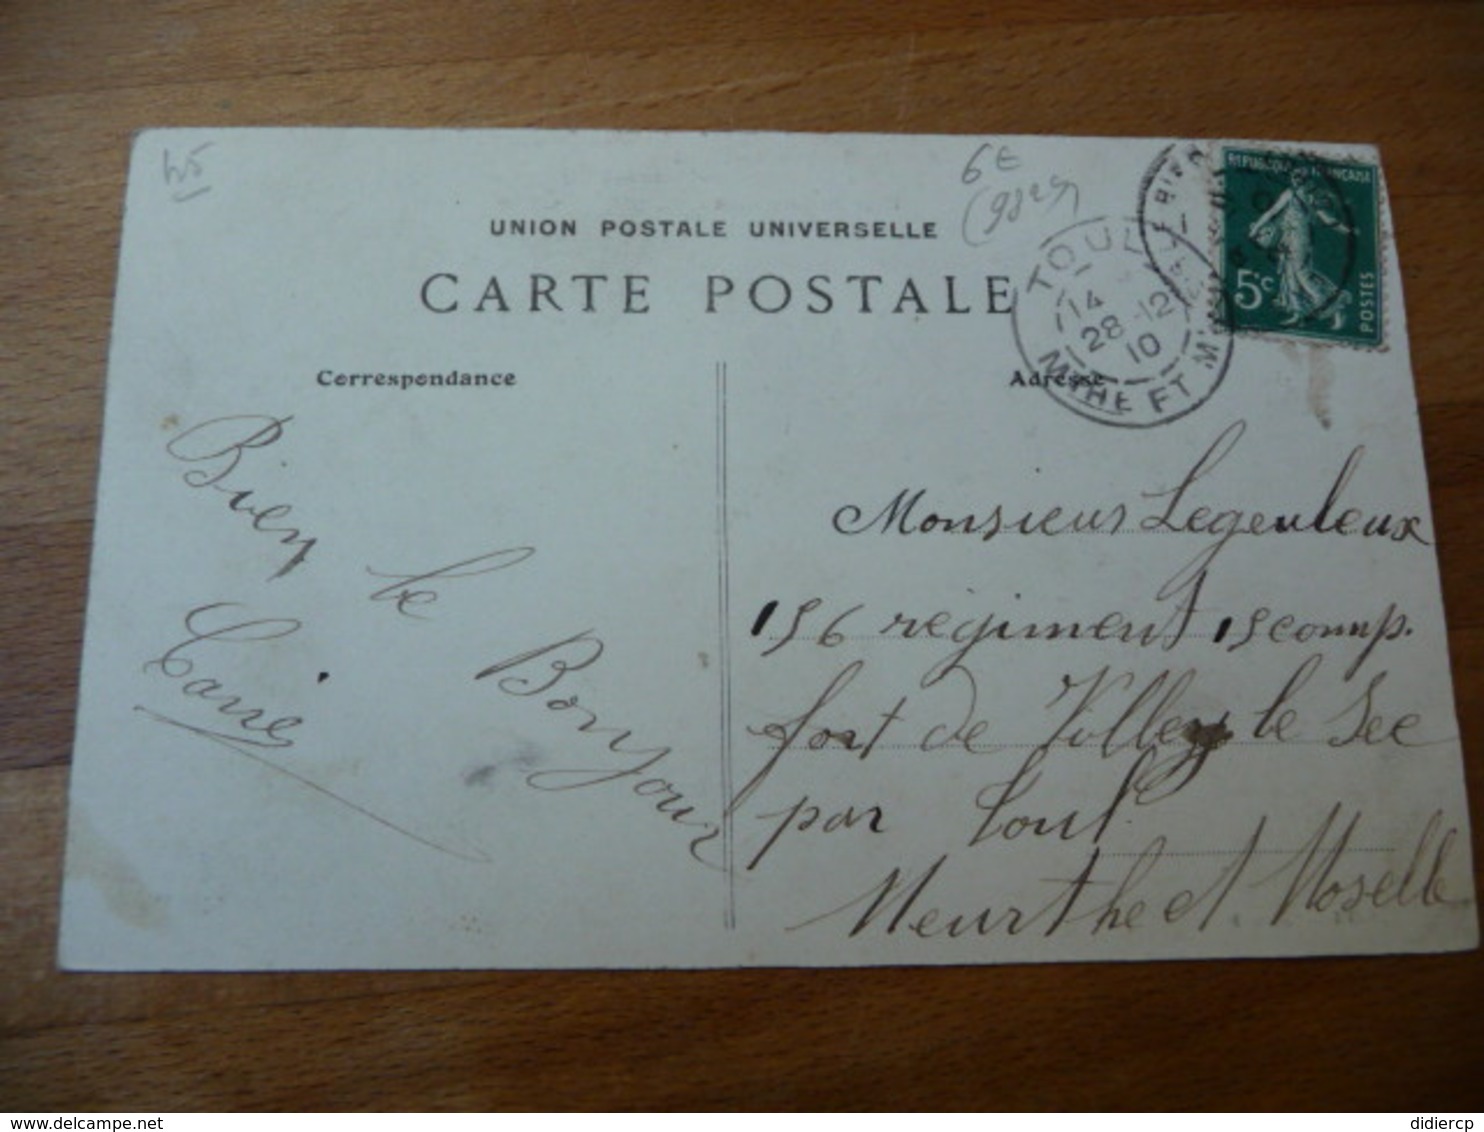 45
6€
(9829)
UNION POSTALE UNIVERSELLE
CARTE POSTALE
Correspondance
Adresse
TOUL
14
28-12
10
MTHE ET M
REPUBLIQUE FRANÇAISE
5c
POSTES
Bien
le
Bonjour
Monsieur Legeuleux
156 régiment 15 comp.
fort de Villey le Sec
par Toul
Meurthe et Moselle
didiercp